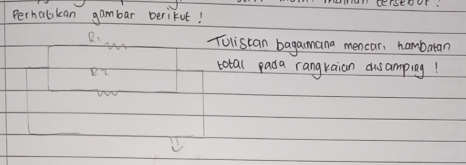 tersebut!
Perhatikan gambar berikut !
R1
Tuliskan bagaimana mencari hambatan
R2
total pada rangkaian disamping !